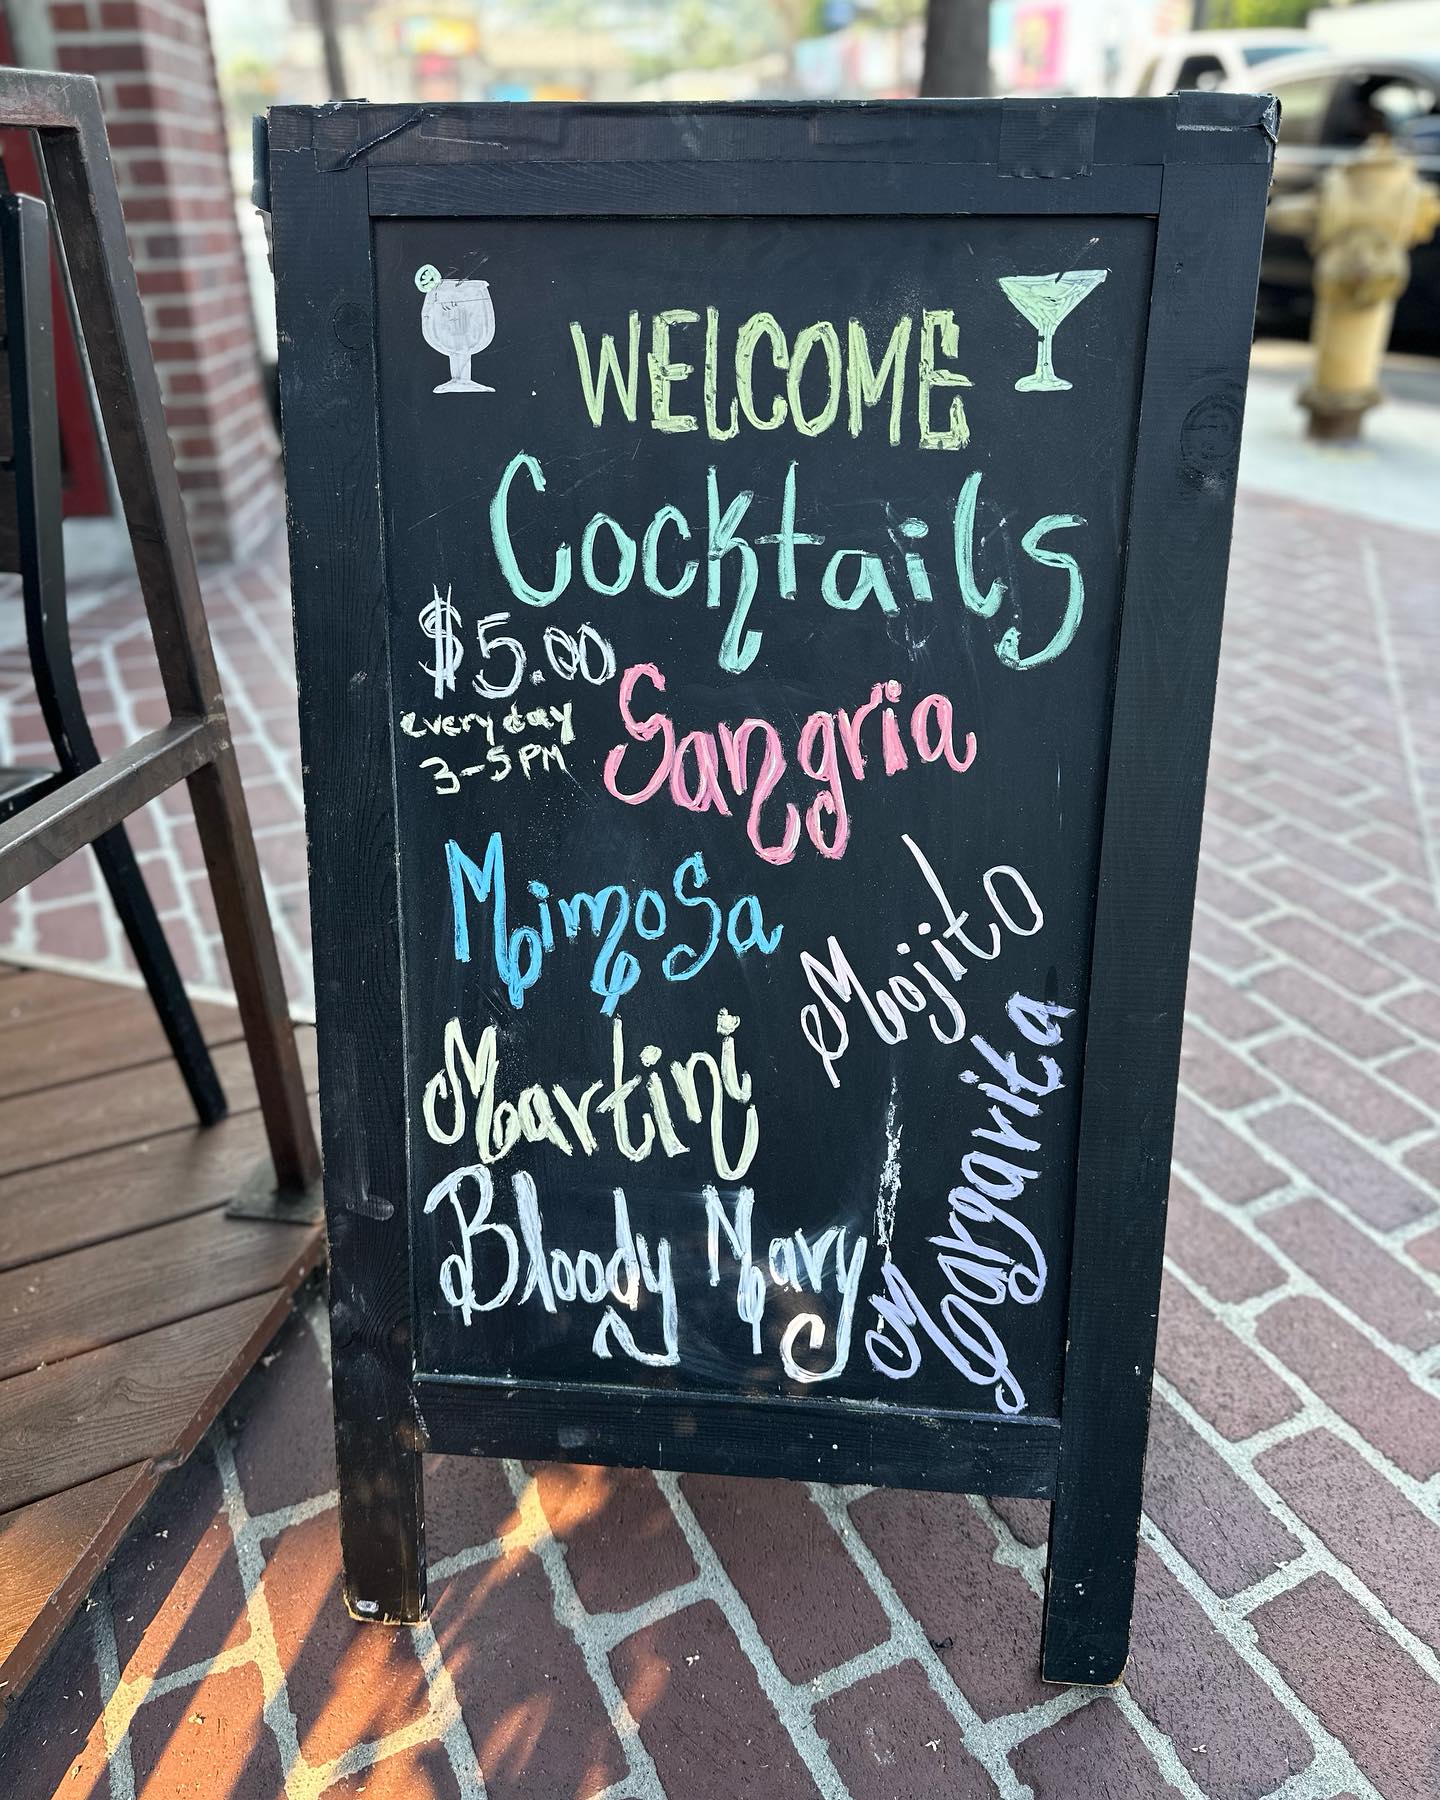 WELCOME
Cocktails
$5.00
everyday
3-5PM
Sangria
Mimosa
Mojito
Martini
Margarita
Bloody Mary